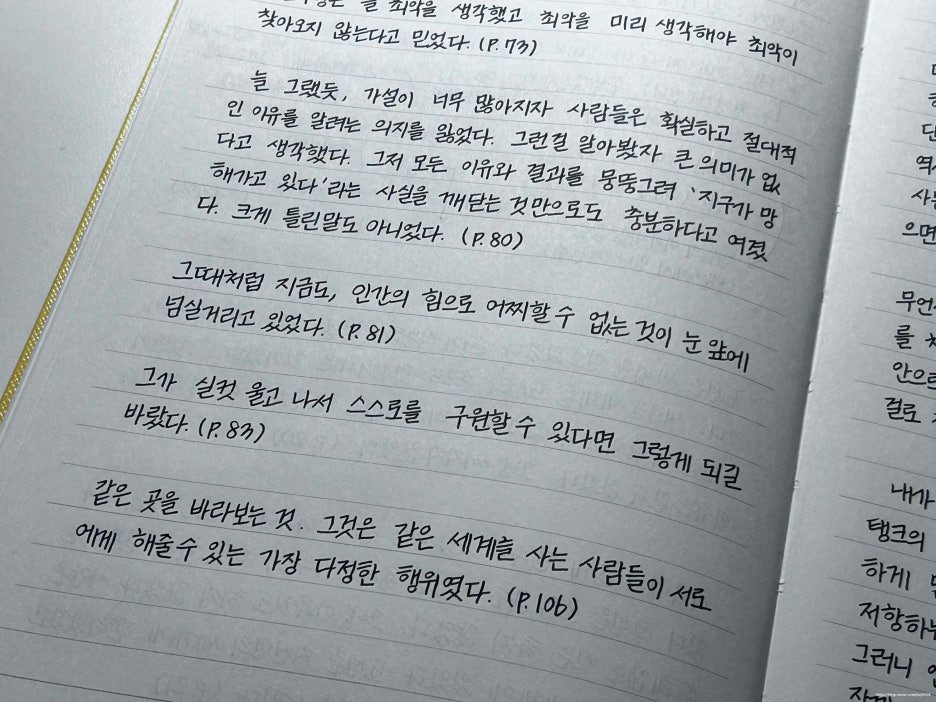 늘 최악을 생각했고 최악을 미리 생각해야 최악이
찾아오지 않는다고 믿었다. (P.73)
늘 그랬듯, 가설이 너무 많아지자 사람들은 확실하고 절대적
인 이유를 알려는 의지를 잃었다. 그런걸 알아봤자 큰 의미가 없
다고 생각했다. 그저 모든 이유와 결과를 뭉뚱그려 '지구가 망
해가고 있다'라는 사실을 깨닫는 것만으로도 충분하다고 여겼
다. 크게 틀린말도 아니었다. (P.80)
그때처럼 지금도, 인간의 힘으로 어찌할 수 없는 것이 눈 앞에
넘실거리고 있었다. (P.81)
그가 실컷 울고 나서 스스로를 구원할 수 있다면 그렇게 되길
바랐다. (P.83)
같은 곳을 바라보는 것. 그것은 같은 세계를 사는 사람들이 서로
에게 해줄 수 있는 가장 다정한 행위였다. (P.106)
단
역
으면
무언
를
안으로
걸로
내가
탱크의
하게
저항하
그러니